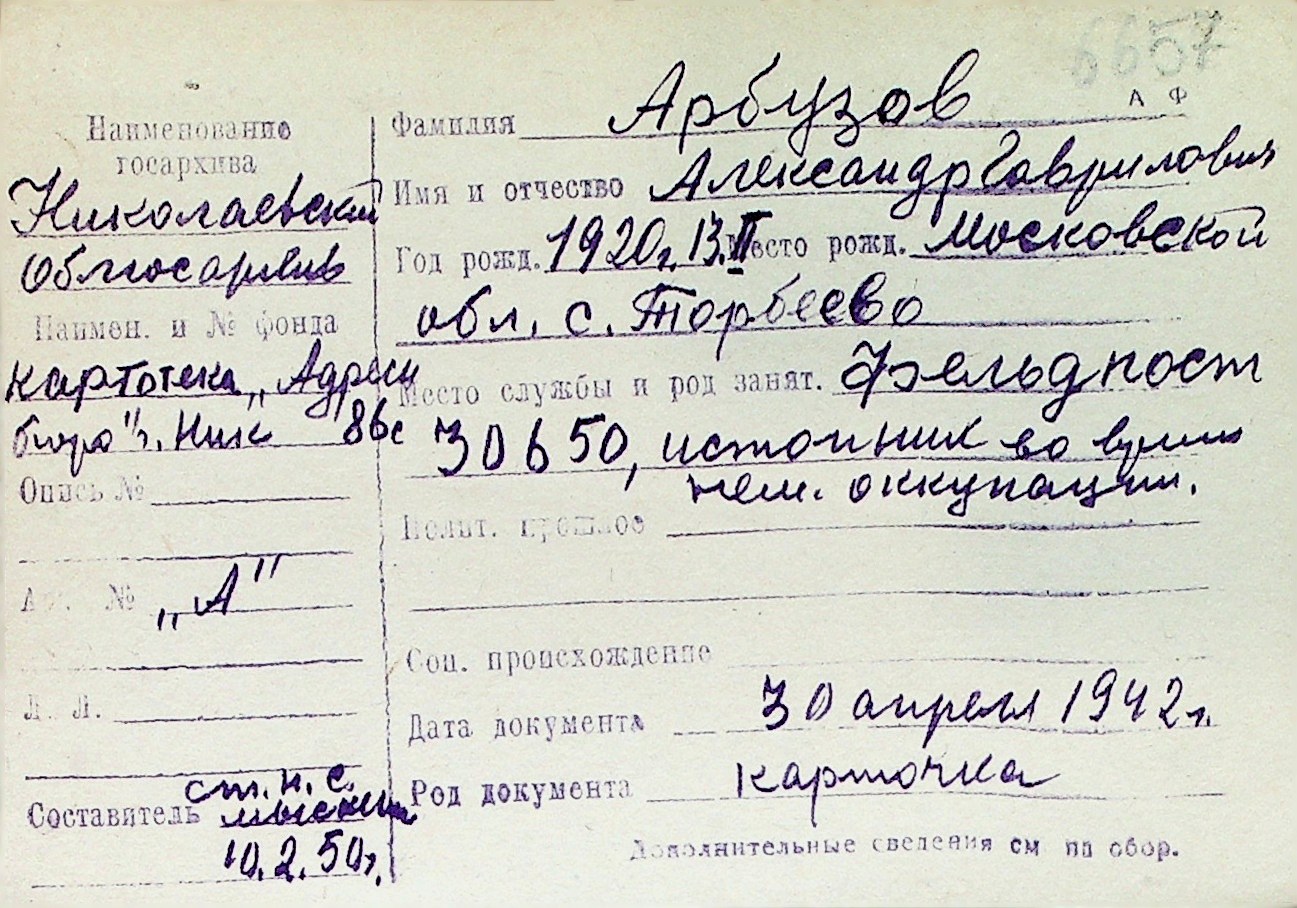 6657
А Ф
Наименование
госархива
Николаевский
Облгосархив
Наимен. и № фонда
картотека „Адресн
бюро" г. Ник 86с
Опись №
№ „А"
Л. Л.
Составитель ст. н. с.
10.2.50г.
Фамилия Арбузов
Имя и отчество Александр Гаврилович
Год рожд. 1920г. 13.II Место рожд. Московской
обл. с. Торбеево
Место службы и род занят. Фельдпост
30650, истопник во время
нем. оккупации.
Полит. прошлое
Соц. происхождение
Дата документа 30 апреля 1942г.
Род документа карточка
Дополнительные сведения см на обор.